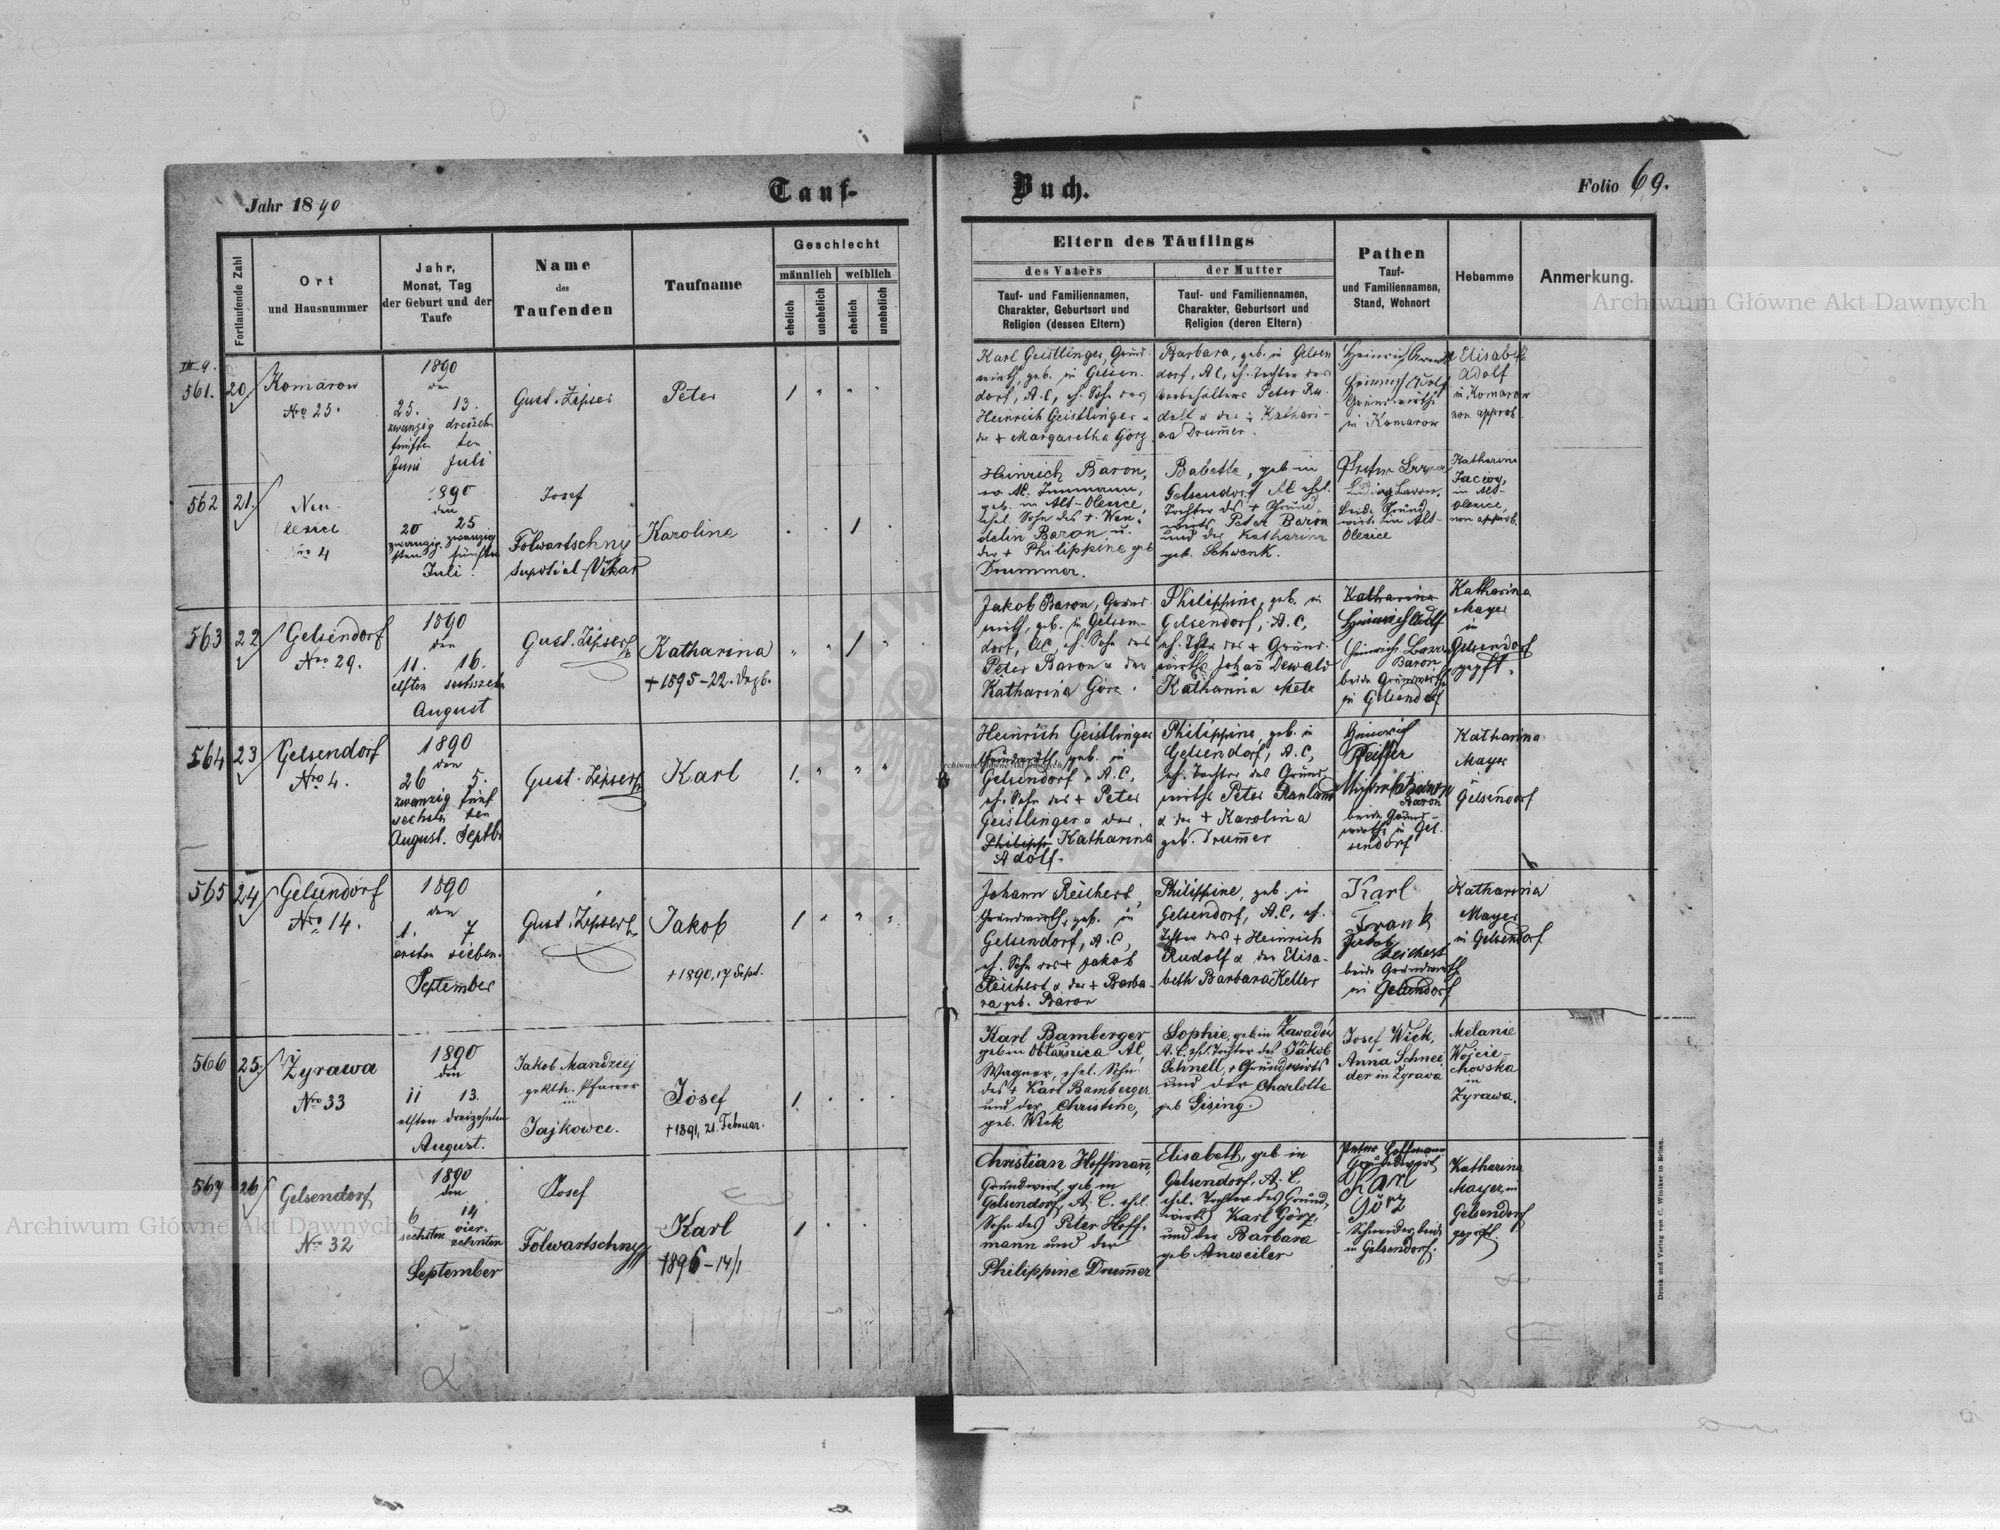 Jahr 1890
Tauf-
Buch.
Folio 69.
Fortlaufende Zahl
Ort
und Hausnummer
Jahr,
Monat, Tag
der Geburt und der
Taufe
Name
des
Taufenden
Taufname
Geschlecht
männlich
weiblich
ehelich
unehelich
ehelich
unehelich
Eltern des Täuflings
des Vaters
Tauf- und Familiennamen,
Charakter, Geburtsort und
Religion (dessen Eltern)
der Mutter
Tauf- und Familiennamen,
Charakter, Geburtsort und
Religion (deren Eltern)
Pathen
Tauf-
und Familiennamen,
Stand, Wohnort
Hebamme
Anmerkung.
561. 20
Komarow
Nro 25.
1890
den
25. 13.
zwanzig dreizehn
fünften ten
Juni Juli
Gust. Zipser
Peter
1
Karl Geistlinger, Grund-
wirth, geb. in Gelsen-
dorf, A.C, eh. Sohn des
Heinrich Geistlinger u
der + Margaretha Görz
Barbara, geb. in Gelsen
dorf, AC, eh. Tochter des
Peter Ru-
dolf u der + Kathari-
na Drum̄er.
Heinrich
Heinrich Adolf
Grundwirthe
in Komarow
Elisabeth
Adolf
in Komarow
non approb.
562 21.
Neu-
Olexice
Nro 4
1890
den
20 25
zwanzig- zwanzig
sten fünften
Juli.
Josef
Folwartschny
Vikar
Karoline
1
Heinrich Baron,
geb. in Alt-Olexice,
ehel. Sohn des + Wen-
delin Baron u.
der + Philippine geb
Drummer.
Babette, geb in
Gelsendorf AC ehel.
Tochter des + Grund-
wirts Peter Baron
und der Katharina
geb. Schwenk.
Ludwig Baron,
beide Grund
wirte in Alt-
Olexice
Katharina
Jaccoy,
in Alt-
Olexice,
non approb.
563 22
Gelsendorf
Nro 29.
1890
den
11. 16.
elften sechszehn
August
Gust. Zipser
Katharina
+ 1895-22. Dezb.
1
Jakob Baron, Grund-
wirth, geb. in Gelsen-
dorf, AC, eh. Sohn des
Peter Baron u der
Katharina Görz.
Philippine, geb. in
Gelsendorf, A.C,
eh. Tchtr des + Grund-
wirths Johan̄ Dewald
Katharina Metz
Katharina
Heinrich Adolf
Heinrich Baron
Baron
beide Grundwirthe
in Gelsendorf
Katharina
Mayer
in
Gelsendorf
gepft.
564 23
Gelsendorf
Nro 4.
1890
den
26 5.
zwanzig fünf
sechsten ten
August. Septb.
Gust. Zipser
Karl
1.
Heinrich Geistlinger
Grundwirth, geb. in
Gelsendorf, A.C,
eh. Sohn des + Peter
Geistlinger u der
Philipp. Katharina
Adolf.
Philippine, geb. in
Gelsendorf, A.C,
eh. Tochter des Grund-
wirths Peter Manland
u der + Karolina
geb. Drum̄er
Heinrich
Pfeiffer
Michael Baron
Baron
beide Grund-
wirthe in Gel-
sendorf
Katharina
Mayer
in
Gelsendorf
565 24
Gelsendorf
Nro 14.
1890
den
1. 7
ersten sieben.
September
Gust. Zipser
Jakob
+ 1890, 17 Sept.
1
Johann Reichert,
Grundwirth, geb. in
Gelsendorf, A.C,
eh. Sohn des + Jakob
Reichert u der + Barba-
ra geb. Baron
Philippine, geb. in
Gelsendorf, A.C, eh.
Tchter des + Heinrich
Rudolf u der Elisa-
beth Barbara Keller
Karl
Frank
Jakob
Reichert
beide Grundwirth
in Gelsendorf
Katharina
Mayer
in Gelsendorf
566 25.
Żyrawa
Nro 33
1890
den
11 13.
elften dreizehnten
August.
Jakob Mandziej
gr. kth. Pfarrer
in
Jajkowce.
Josef
+ 1891, 21. Februar.
1.
Karl Bamberger
geb in Obłaznica AC,
Wagner, ehel. Sohn
des + Karl Bamberger
und der Christine,
geb. Wick
Sophie, geb in Zawadów
A.C. ehel. Tochter des Jakob
Schnell, + Grundwirts
und der Charlotte
geb Gising.
Josef Wick,
Anna Schnei
der in Zyrawa
Melanie
Wojcie-
chowska
in
Zyrawa.
567 26
Gelsendorf
Nro 32
1890
den
6 14
sechsten vier-
zehnten
September
Josef
Folwartschny
Karl
+ 1896-14/1
1
Christian Hoffman̄
Grundwirt, geb in
Gelsendorf, A. C. ehel.
Sohn des Peter Hoff-
mann und der
Philippine Drum̄er
Elisabeth, geb in
Gelsendorf, A. C,
ehel. Tochter des Grund-
wirts Karl Görz,
und der Barbara
geb Anweiler
Peter Hoffmann
Grundwirt
Karl
Görz
Schneider, beide
in Gelsendorf.
Katharina
Mayer, in
Gelsendorf
geprüft.
Druck und Verlag von C. Winiker in Brünn.
Archiwum Główne Akt Dawnych
Archiwum Główne Akt Dawnych
Archiwum Główne Akt Dawnych